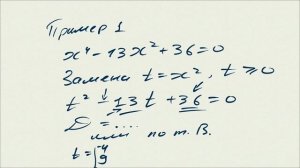 Пример 1
x⁴ - 13x² + 36 = 0
Замена t = x², t ⩾ 0
t² - 13t + 36 = 0
D = ....
или по т. В.
t = [4
9